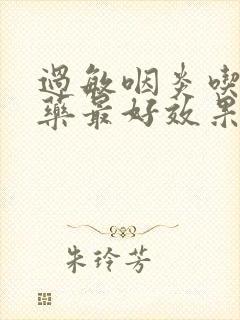 過敏咽炎喫
藥最好效果
朱玲芳